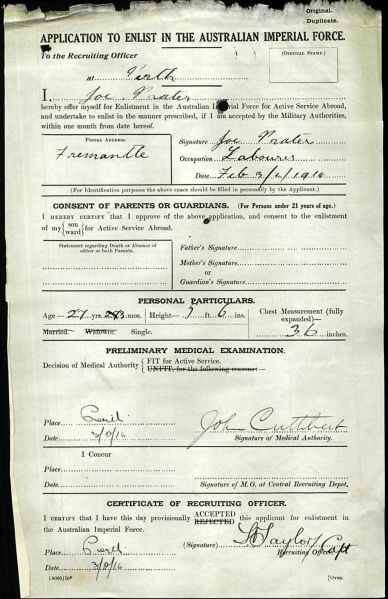 Original.
Duplicate.
APPLICATION TO ENLIST IN THE AUSTRALIAN IMPERIAL FORCE.
To the Recruiting Officer
(OFFICIAL STAMP.)
at Perth
I, Joe Prater
hereby offer myself for Enlistment in the Australian Imperial Force for Active Service Abroad,
and undertake to enlist in the manner prescribed, if I am accepted by the Military Authorities,
within one month from date hereof.
POSTAL ADDRESS.
Fremantle
Signature Joe Prater
Occupation Labourer
Date Feb 3/2/1916
(For Identification purposes the above space should be filled in personally by the Applicant.)
CONSENT OF PARENTS OR GUARDIANS. (For Persons under 21 years of age.)
I HEREBY CERTIFY that I approve of the above application, and consent to the enlistment
of my {son
ward} for Active Service Abroad.
Statement regarding Death or Absence of
either or both Parents.
Father's Signature
Mother's Signature
or
Guardian's Signature
PERSONAL PARTICULARS.
Age 27 yrs. 3 mos. Height 5 ft. 6 ins.
Chest Measurement (fully
expanded)—
36 inches.
Married. Widower. Single.
PRELIMINARY MEDICAL EXAMINATION.
Decision of Medical Authority { FIT for Active Service.
UNFIT, for the following reasons:
Place Perth
Date 3/2/16
John Cuthbert
Signature of Medical Authority.
I Concur
Place
Date
Signature of M.O. at Central Recruiting Depot.
CERTIFICATE OF RECRUITING OFFICER.
I CERTIFY that I have this day provisionally ACCEPTED
REJECTED this applicant for enlistment in
the Australian Imperial Force.
Place Perth
Date 3/2/16
(Signature) Taylor Capt
Recruiting Officer.
[Over.